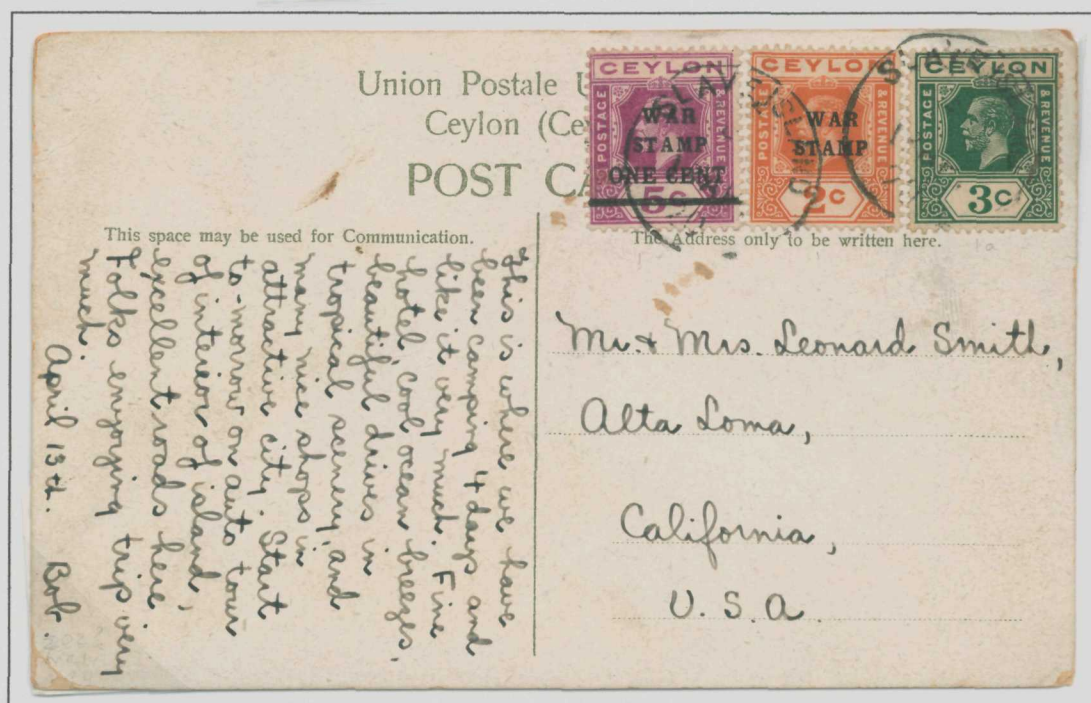 Union Postale U
Ceylon (Ce
POST CA
CEYLON
POSTAGE
& REVENUE
WAR
STAMP
ONE CENT
5c
CEYLON
POSTAGE
& REVENUE
WAR
STAMP
2c
CEYLON
POSTAGE
& REVENUE
3c
This space may be used for Communication.
The Address only to be written here.
This is where we have
been camping 4 days and
like it very much. Fine
hotel, cool ocean breezes,
beautiful drives in
tropical scenery, and
many nice shops in
attractive city. Start
to-morrow on auto tour
of interior of island,
excellent roads here
Folks enjoying trip very
much.
April 13th. Bob.
Mr. & Mrs. Leonard Smith,
Alta Loma,
California,
U. S. A.